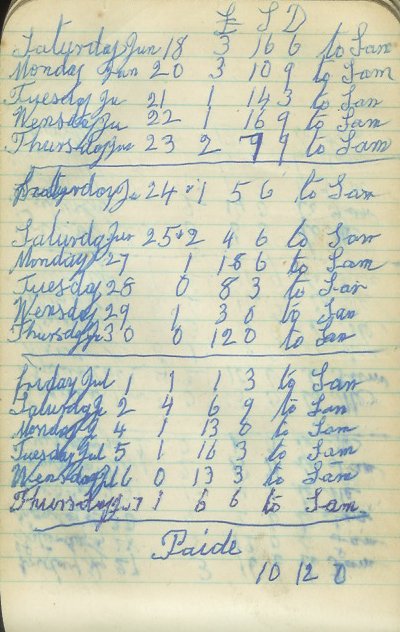 £ S D
Saturday Jun 18 3 16 6 to Sam
Monday Jun 20 3 10 9 to Sam
Tuesday Ju 21 1 14 3 to Sam
Wensday Ju 22 1 16 9 to Sam
Thursday Jun 23 2 9 9 to Sam
Ju 24 1 5 6 to Sam
Saturday Jun 25 2 4 6 to Sam
Monday 27 1 18 6 to Sam
Tuesday 28 0 8 3 to Sam
Wensday 29 1 3 0 to Sam
Thursday 30 0 12 0 to Sam
Friday Jul 1 1 1 3 to Sam
Saturday Ju 2 4 6 9 to Sam
Monday 4 1 13 0 to Sam
Tuesday Jul 5 1 16 3 to Sam
Wensday Jul 6 0 13 3 to Sam
Thursday Ju 7 1 6 6 to Sam
Paide
10 12 0